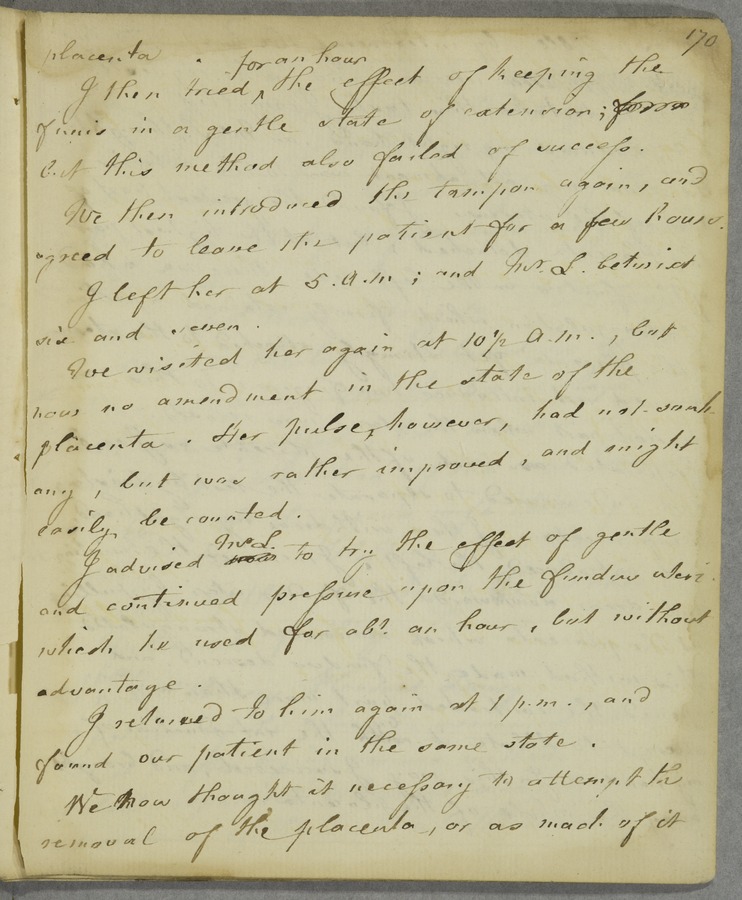 170
placenta .
for an hour
I then tried, the effect of keeping the
funis in a gentle state of extension;
but this method also failed of success.
We then introduced the tampon again, and
agreed to leave the patient for a few hours.
I left her at 5. a.m ; and Mr. L. betwixt
six and seven.
We visited her again at 10½ a.m., but
no amendment in the state of the
placenta. Her pulse, however, had not sunk
any, but was rather improved, and might
easily be counted.
Mr. L.
I advised to try the effect of gentle
and continued pressure upon the fundus uteri.
which he used for abt. an hour, but without
advantage.
I returned to him again at 1 p.m., and
found our patient in the same state.
We now thought it necessary to attempt the
removal of the placenta, or as much of it